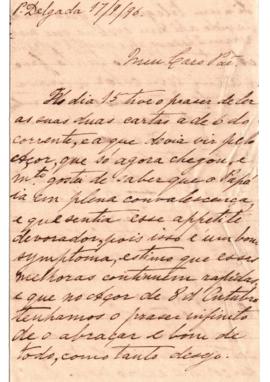 P. Delgada 17/9/96.
Meu Caro Pai
No dia 15 tive o praser de ler
as suas duas cartas a de 6 do
corrente, e a que devia vir pelo
Açor, que so agora chegou e
mto. gosto de saber que o Papá
ia em plena convalescença
e que sentia esse appetite
devorador, pois isso é um bom
symptoma, estimo que essas
melhoras continuem rapidas
e que no Açor de 8 d'Outubro
tenhamos o praser infinito
de o abraçar e bom de
todo, como tanto desejo.